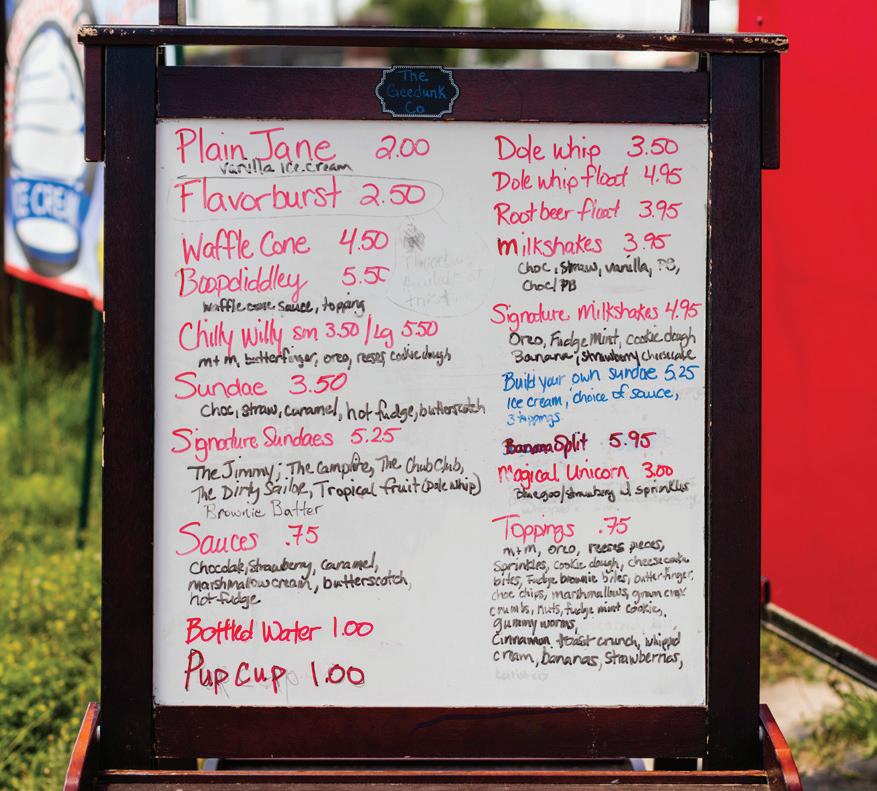 The
Geedunk
Co
ICE CREAM
Plain Jane 2.00
vanilla ice cream
Flavorburst 2.50
Waffle Cone 4.50
Boopdiddley 5.50
waffle cone sauce, topping
Chilly Willy sm 3.50 / Lg 5.50
m+m, butterfinger, oreo, reeses, cookie dough
Sundae 3.50
choc, straw, caramel, hot fudge, butterscotch
Signature Sundaes 5.25
The Jimmy, The Campfire, The Chub Club,
The Dirty Sailor, Tropical fruit (Dole whip)
Brownie Batter
Sauces .75
Chocolate, strawberry, caramel,
marshmallow cream, butterscotch,
hot fudge
Bottled Water 1.00
Pup Cup 1.00
Dole whip 3.50
Dole whip float 4.95
Root beer float 3.95
Milkshakes 3.95
choc, straw, vanilla, PB,
choc/PB
Signature Milkshakes 4.95
Oreo, Fudge Mint, cookie dough
Banana, strawberry cheesecake
Build your own sundae 5.25
ice cream, choice of sauce,
3 toppings
Banana Split 5.95
Magical Unicorn 3.00
Blue goo/strawberry w sprinkles
Toppings .75
m+m, oreo, reeses pieces,
Sprinkles, cookie dough, cheesecake
bites, Fudge brownie bites, butterfinger,
choc chips, marshmallows, gram crax
crumbs, nuts, fudge mint cookies,
gummy worms,
Cinnamon toast crunch, whipped
cream, bananas, strawberries,